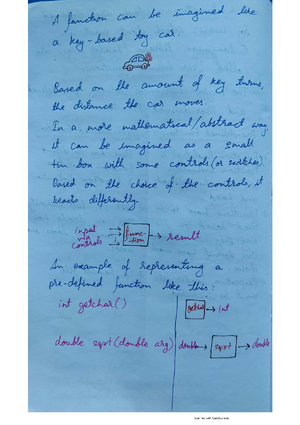 A function can be imagined like
a key-based toy car.
Based on the amount of key turns,
the distance the car moves.
In a more mathematical/abstract way
it can be imagined as a small
tin box with some controls (or switches)
Based on the choice of the controls, it
reacts differently.
input
via
controls
func-
tion
result
An example of representing a
pre-defined function like this:
int getchar()
getchar
int
double sqrt (double arg)
double
sqrt
double